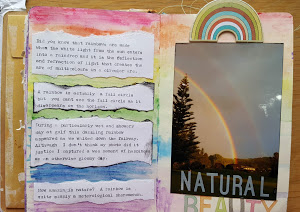 Did you know that rainbows are made
when the white light from the sun enters
into a raindrop and it is the reflection
and refraction of light that creates the
arc of multicolours in a circular arc.
A rainbow is actually a full circle
but you cant see the full circle as it
disappears on the horizon.
During a particularly wet and showery
day at golf this amazing rainbow
appeared as we walked down the fairway.
Although I don't think my photo did it
justice I captured a
on an otherwise gloomy day.
nature! A rainbow is
quite simply a meteorological phenomenon.
NATURAL
BEAUTY